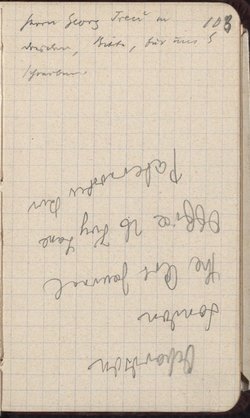 Herrn Georg Treu in 103
Dresden, Bitte, für uns 5
schreiben.
Ochardson
London
the Art Journal
Office 26 Ivy Lane
Paternoster Row